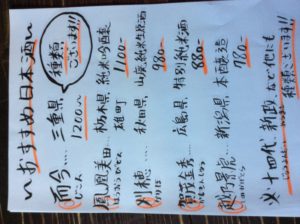 〜おすすめ日本酒〜
種類ございます!!
而今… 三重県 1200-
じこん
鳳凰美田… 栃木県 純米吟醸 雄町 1100-
ほうおうびでん
刈穂… 秋田県 山廃純米生原酒 980-
かりほ
賀茂金秀… 広島県 特別純米 880-
かもきんしゅう
越乃景虎… 新潟県 本醸造 780-
こしのかげとら
※十四代、新政など他にも
種類ございます!!